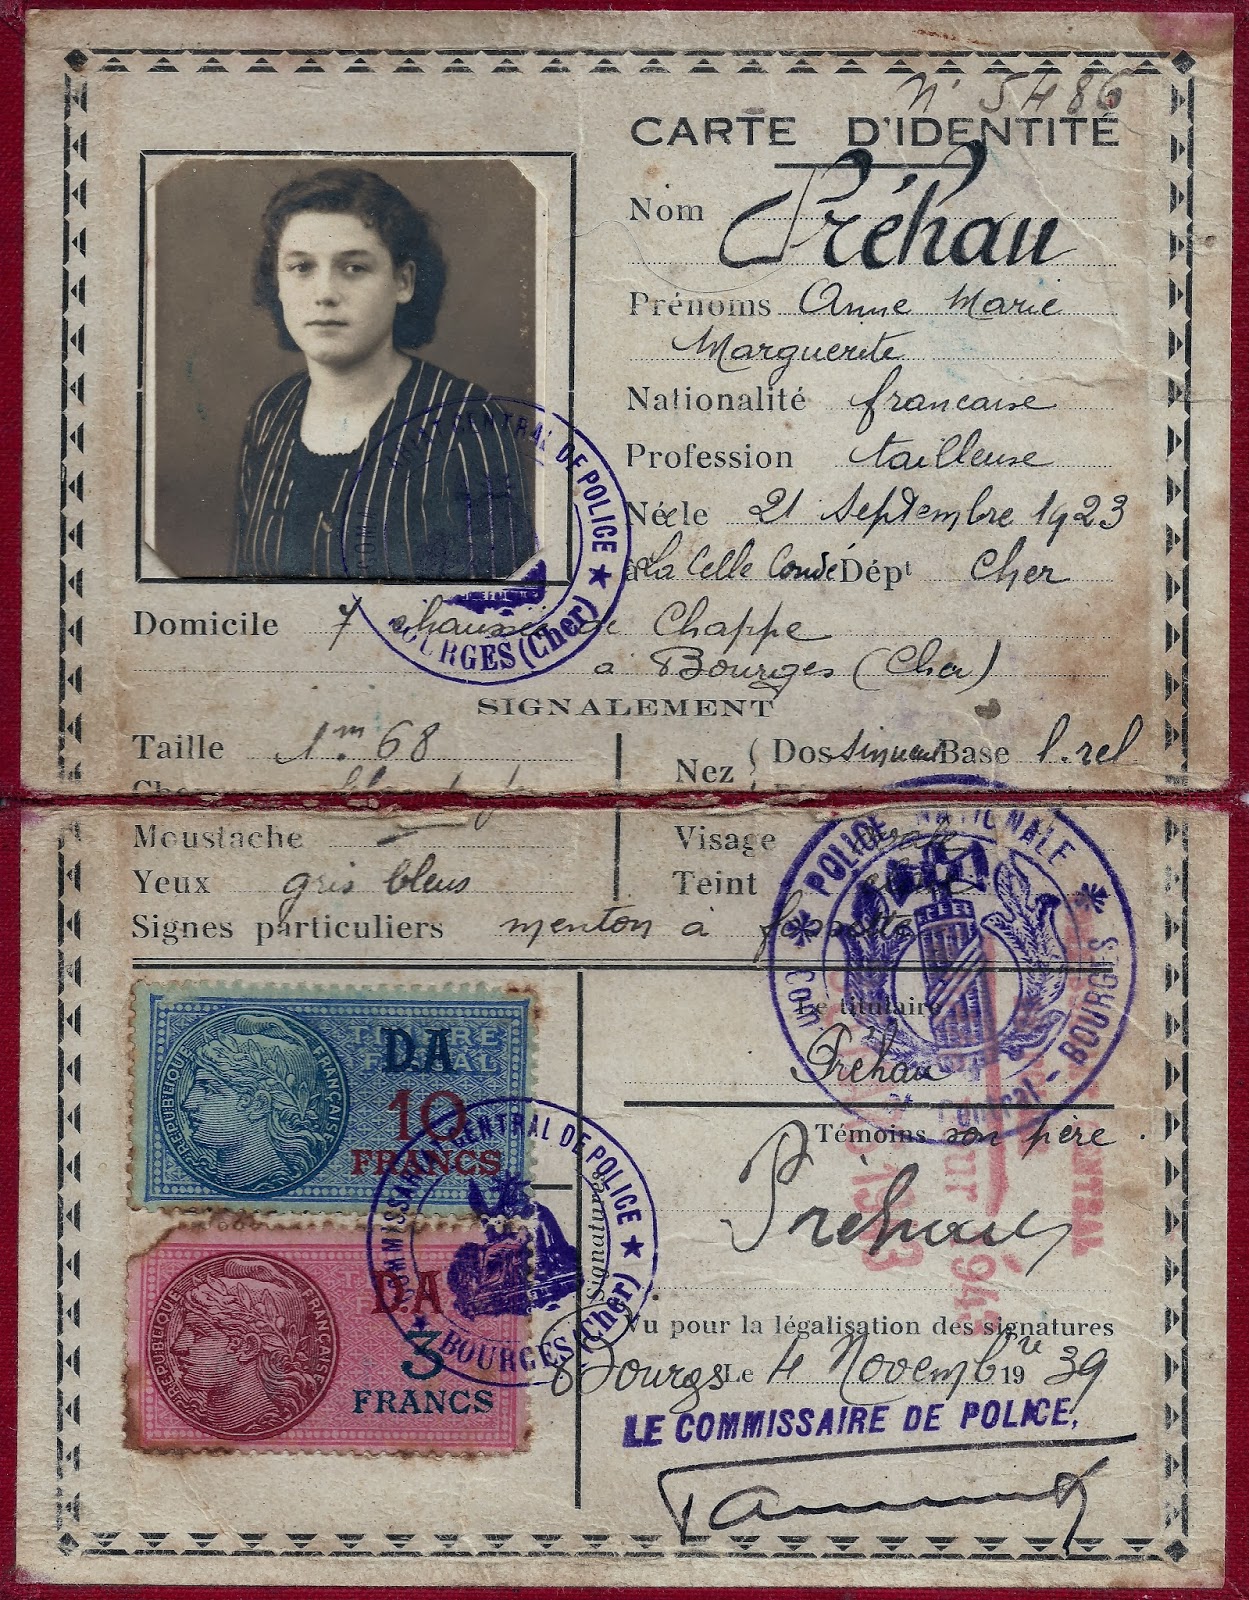 N° 5486
CARTE D'IDENTITÉ
Nom Préhau
Prénoms Anne Marie
Marguerite
Nationalité française
Profession tailleuse
Née le 21 Septembre 1923
à La Celle Condé Dépt Cher
Domicile 7 chaussée de Chappe
à Bourges (Cher)
COMMISSARIAT CENTRAL DE POLICE ★ BOURGES (Cher)
SIGNALEMENT
Taille 1m 68
Nez Dos sinueux Base l. rel
Moustache - Visage ovale
Yeux gris bleus Teint
Signes particuliers menton à fossette
POLICE NATIONALE
Comt Central - BOURGES
Le titulaire
Préhau
TIMBRE FISCAL
RÉPUBLIQUE FRANÇAISE
DA
10
FRANCS
Témoins son père.
Préhau
Signatures
COMMISSARIAT CENTRAL DE POLICE ★ BOURGES (Cher)
RÉPUBLIQUE FRANÇAISE
DA
3
FRANCS
Vu pour la légalisation des signatures
Bourges Le 4 Novembre 1939
LE COMMISSAIRE DE POLICE,